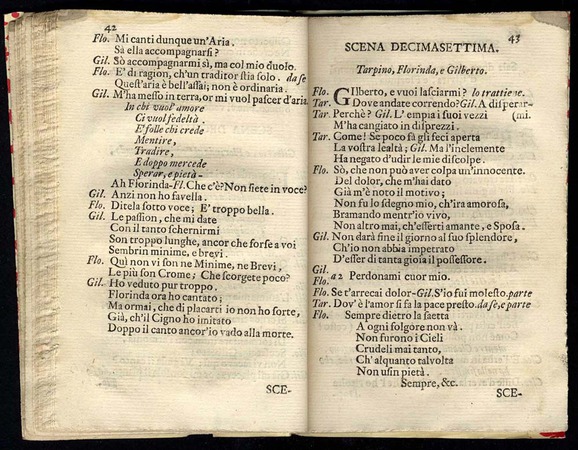 42
Flo. Mi canti dunque un'Aria.
Sà ella accompagnarsi?
Gil. Sò accompagnarmi sì, ma col mio duolo.
Flo. E' di ragion, ch'un traditor stia solo. da se
Quest'aria è bell'assai; non è ordinaria.
Gil. M'ha messo in terra, or mi vuol pascer d'aria.
In chi vuol'amore
Ci vuol fedeltà.
E' folle chi crede
Mentire,
Tradire,
E doppo mercede
Sperar, e pietà-
Ah Florinda-Fl. Che c'è? Non siete in voce?
Gil. Anzi non ho favella.
Flo. Ditela sotto voce; E' troppo bella.
Gil. Le passion, che mi date
Con il tanto schernirmi
Son troppo lunghe, ancor che forse a voi
Sembrin minime, e brevi.
Flo. Quì non vi son ne Minime, ne Brevi,
Le più son Crome; Che scorgete poco?
Gil. Ho veduto pur troppo.
Florinda ora ho cantato;
Ma ormai, che di placarti io non ho forte,
Già, ch'il Cigno ho imitato
Doppo il canto ancor'io vado alla morte.
SCE-
43
SCENA DECIMASETTIMA.
Tarpino, Florinda, e Gilberto.
Flo. GIlberto, e vuoi lasciarmi? lo trattiene.
Tar. Dove andate correndo? Gil. A disperar-
Tar. Perchè? Gil. L' empia i suoi vezzi (mi.
M'ha cangiato in disprezzi.
Tar. Come! Se poco fà gli feci aperta
La vostra lealtà; Gil. Ma l'inclemente
Ha negato d'udir le mie discolpe.
Flo. Sò, che non può aver colpa un'innocente.
Del dolor, che m'hai dato
Già m'è noto il motivo;
Non fu lo sdegno mio, ch'ira amorosa,
Bramando mentr'io vivo,
Non altro mai, ch'esserti amante, e Sposa.
Gil. Non darà fine il giorno al suo splendore,
Ch'io non abbia impetrato
D'esser di tanta gioia il possessore.
Gil.
Flo. a 2 Perdonami cuor mio.
Flo. Se t'arrecai dolor-Gil. S'io fui molesto. parte
Tar. Dov' è l'amor si fà la pace presto. da se, e parte
Flo. Sempre dietro la saetta
A ogni folgore non và.
Non furono i Cieli
Crudeli mai tanto,
Ch' alquanto talvolta
Non usin pietà.
Sempre, &c.
SCE-